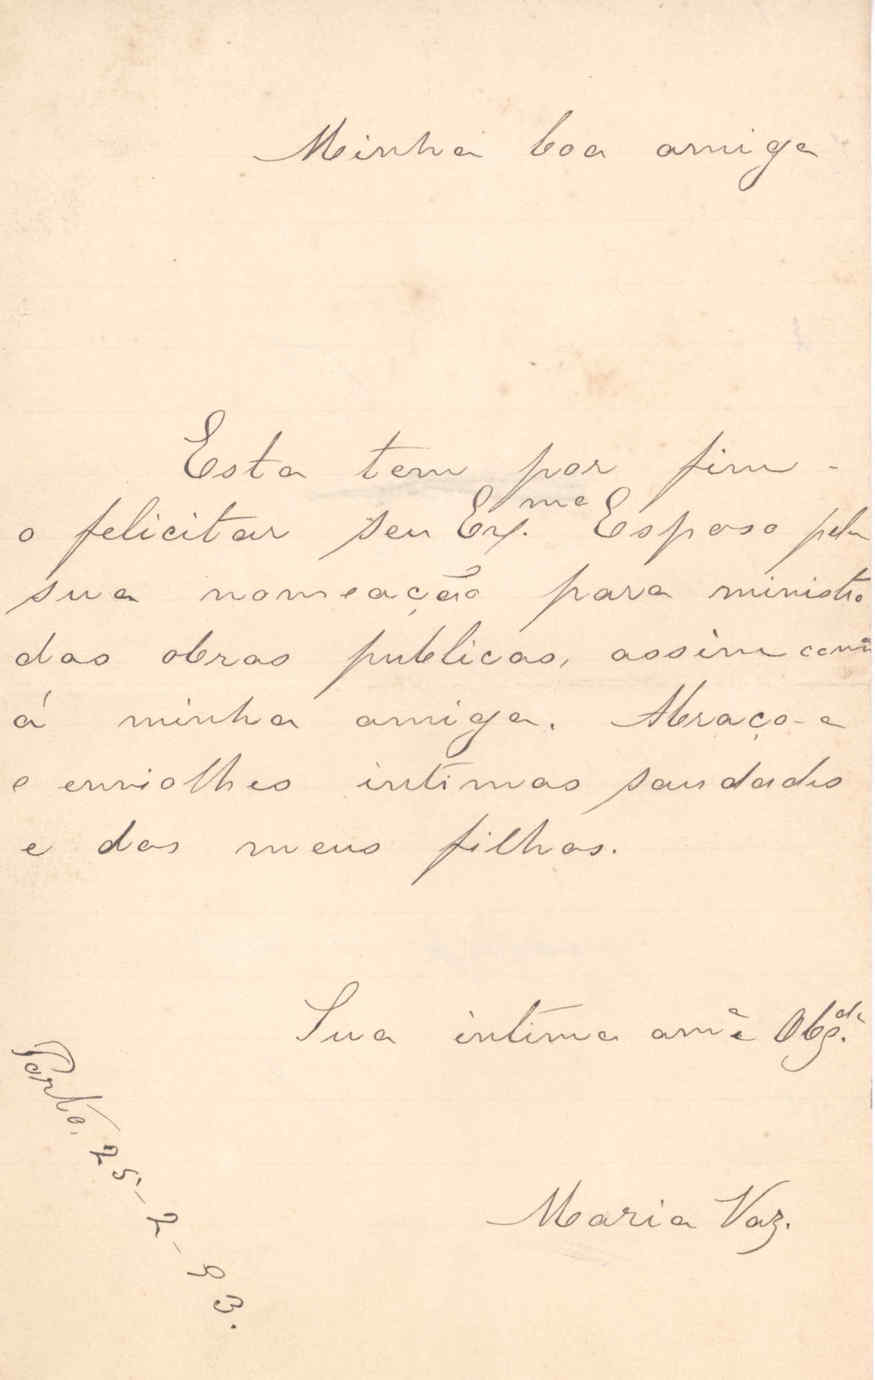 Minha boa amiga
Esta tem por fim -
o felicitar seu Ex.mo Esposo pela
sua nomeação para ministro
das obras publicas, assim como
á minha amiga. Abraço-a
e enviolhes intimas saudades
e dos meus filhos.
Sua intima am.ª e Obg.da
Maria Vaz.
Porto, 25-2-93.